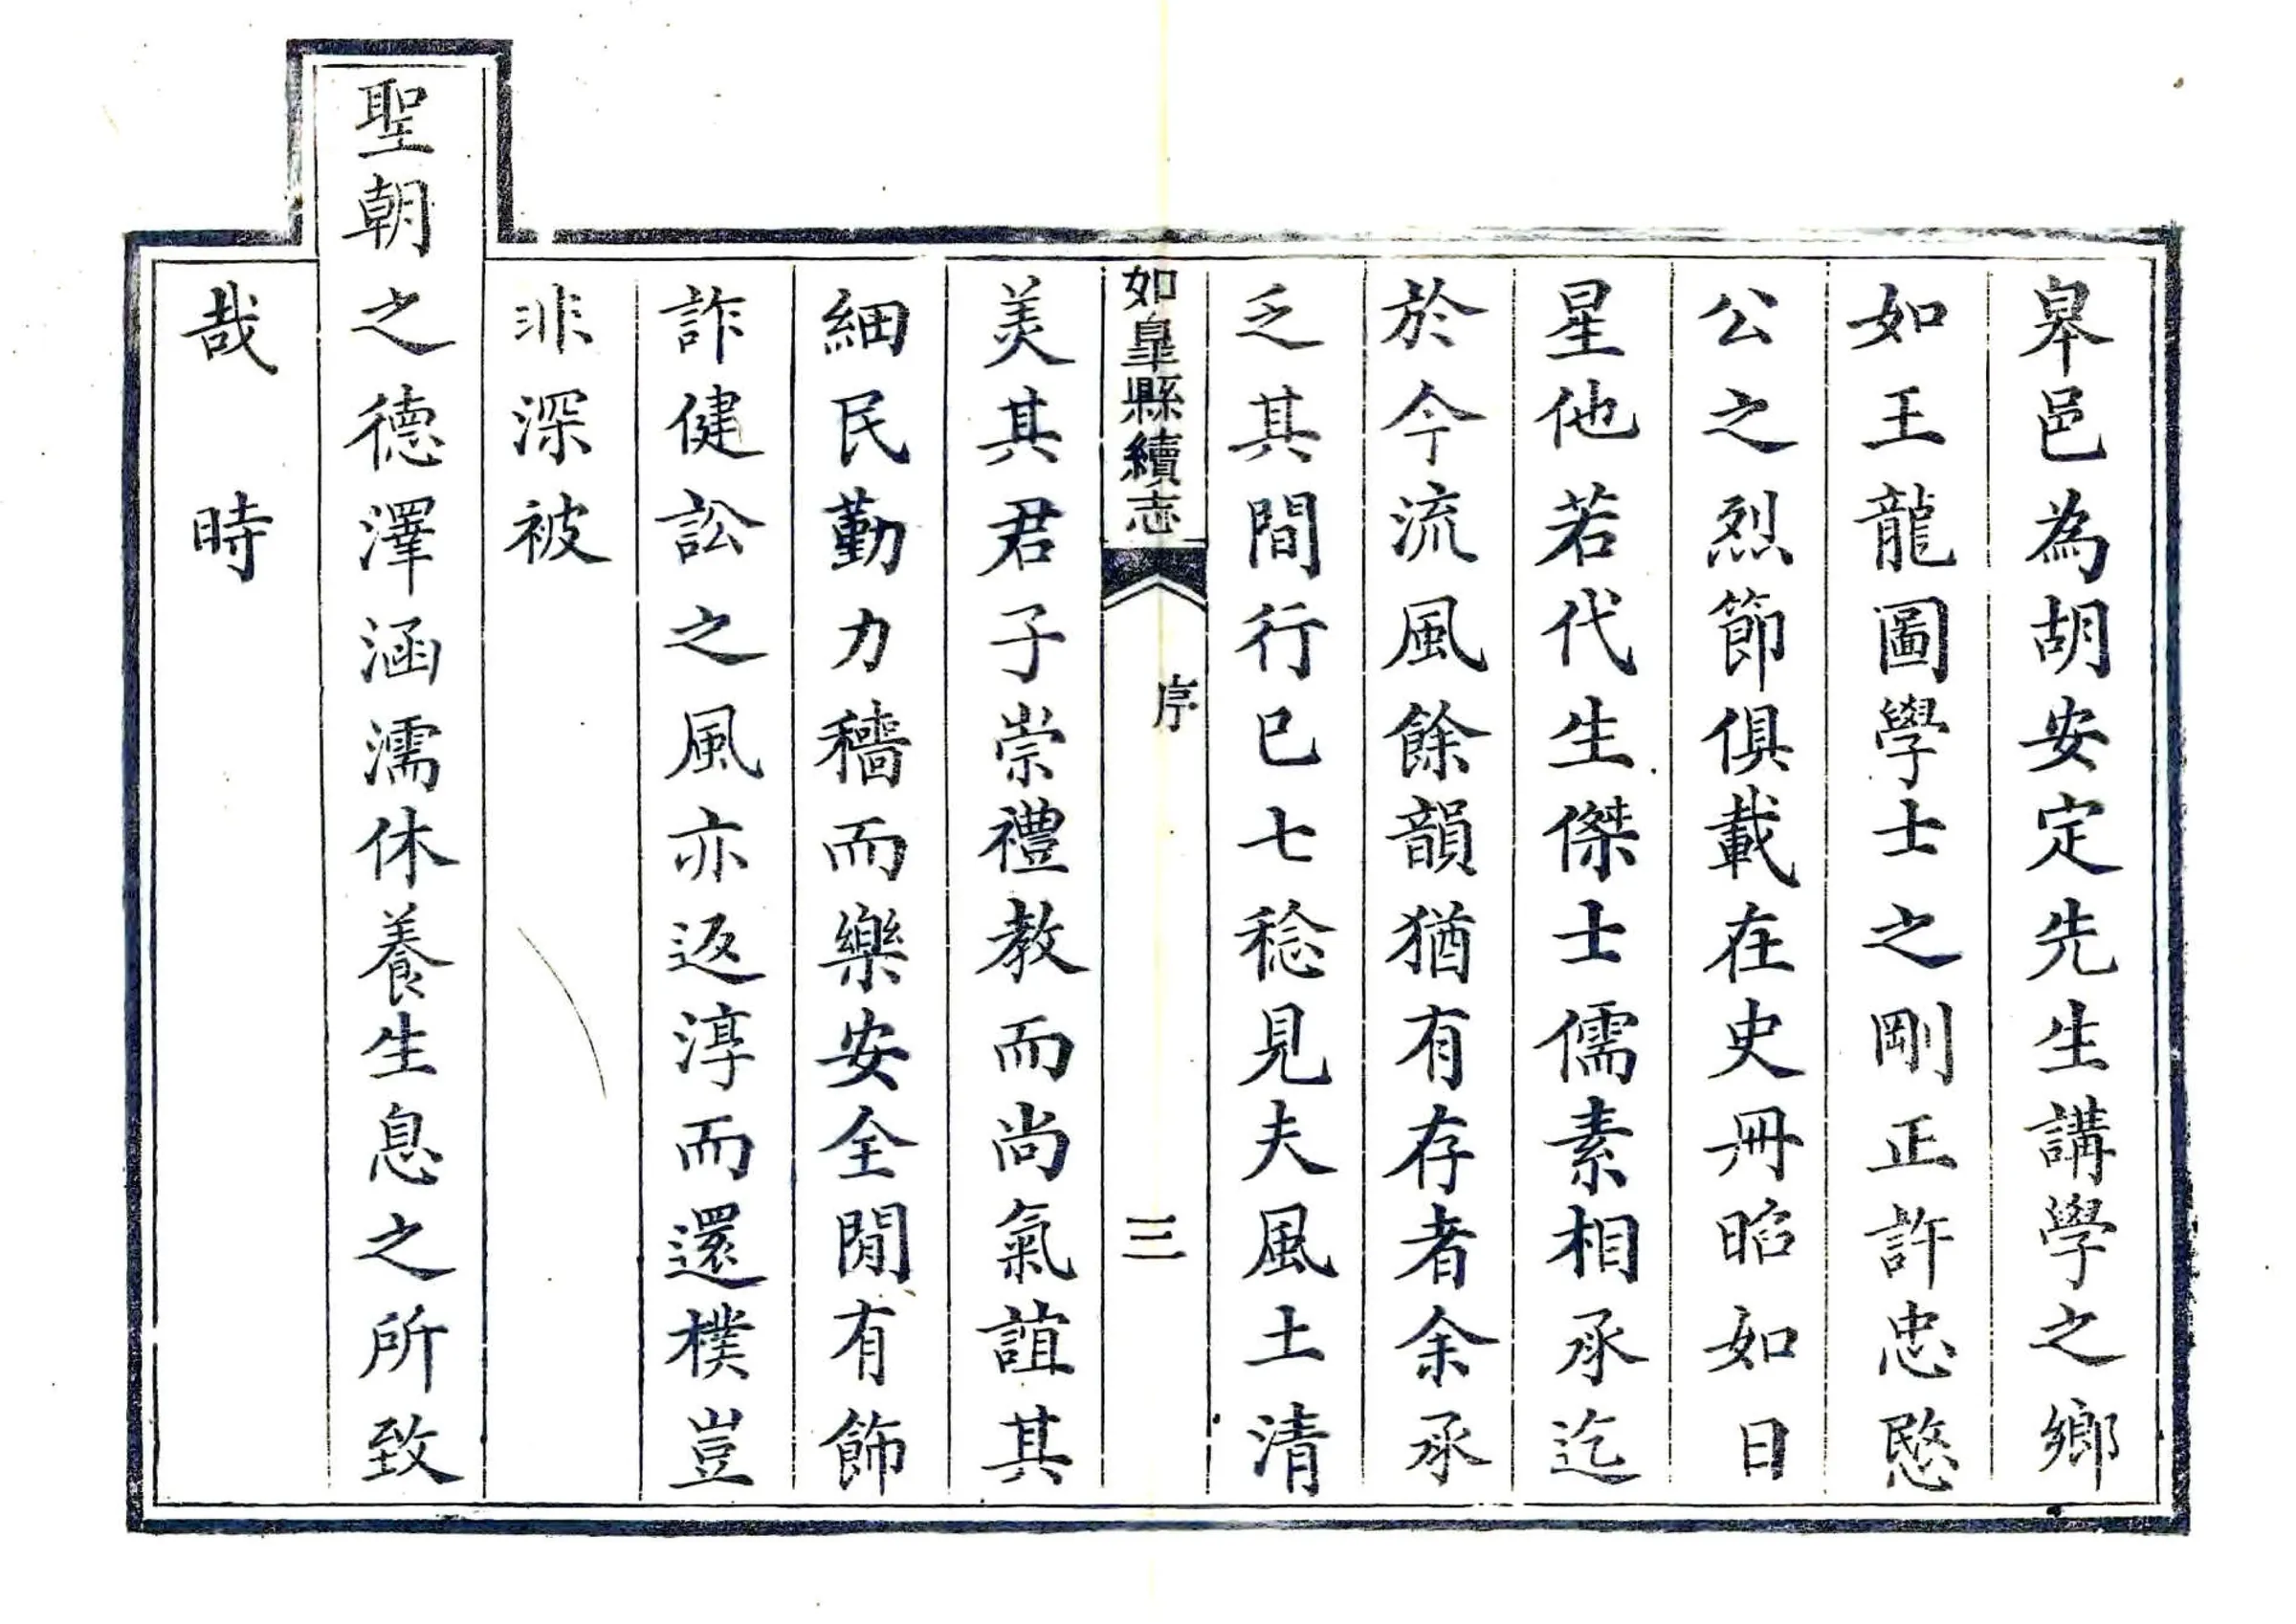 皋邑為胡安定先生講學之鄉
如王龍圖學士之剛正許忠愍
公之烈節俱載在史冊昭如日
星他若代生傑士儒素相承迄
於今流風餘韻猶有存者余承
乏其間行已七稔見夫風土清
如皋縣續志 序 三
美其君子崇禮教而尚氣誼其
細民勤力穡而樂安全閒有飾
詐健訟之風亦返淳而還樸豈
非深被
聖朝之德澤涵濡休養生息之所致
哉 時